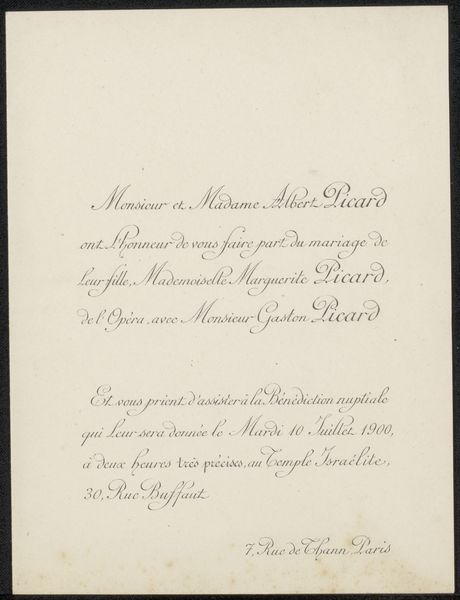 Monsieur et Madame Albert Picard
ont l'honneur de vous faire part du mariage de
leur fille, Mademoiselle Marguerite Picard,
de l'Opéra, avec Monsieur Gaston Picard
Et vous prient d'assister à la Bénédiction nuptiale
qui leur sera donnée le Mardi 10 Juillet 1900,
à deux heures très précises, au Temple Israélite,
30, Rue Buffaut
7, Rue de Thann, Paris